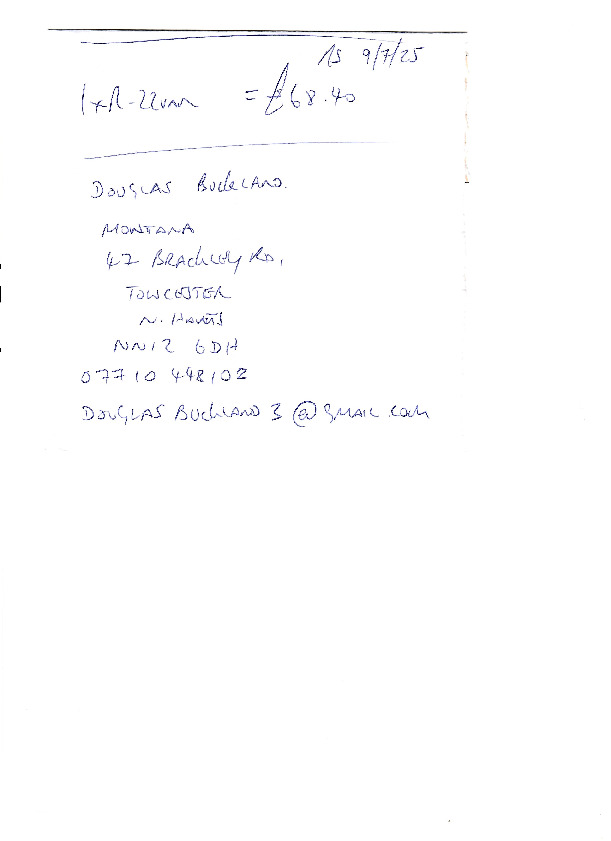 9/7/25
= £68.40
DOUGLAS BUCKLAND.
MONTANA
47 BRACKLEY RD,
TOWCESTER
N. HANTS
NN12 6DH
07710 448102
DOUGLAS BUCKLAND 3 @ GMAIL.COM